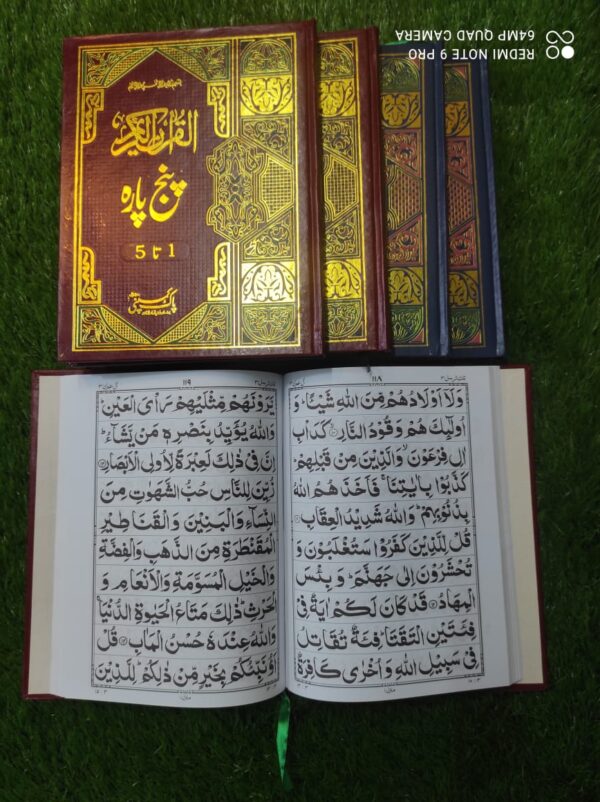 REDMI NOTE 9 PRO
64MP QUAD CAMERA
القرآن الکریم
پنج پارہ
1 تا 5
پاک کمپنی
تلك الرسل ۳
۱۱۸
وَلَاۤ اَوۡلَادُهُمۡ مِّنَ اللّٰهِ شَيۡـًٔا ؕ وَ
اُولٰٓئِكَ هُمۡ وَقُوۡدُ النَّارِ ۙ كَدَاۡبِ
اٰلِ فِرۡعَوۡنَ ۙ وَالَّذِيۡنَ مِنۡ قَبۡلِهِمۡ ؕ
كَذَّبُوۡا بِاٰيٰتِنَا ۚ فَاَخَذَهُمُ اللّٰهُ
بِذُنُوۡبِهِمۡ ؕ وَاللّٰهُ شَدِيۡدُ الۡعِقَابِ
قُلۡ لِّلَّذِيۡنَ كَفَرُوۡا سَتُغۡلَبُوۡنَ وَ
تُحۡشَرُوۡنَ اِلٰى جَهَنَّمَ ؕ وَ بِئۡسَ
الۡمِهَادُ قَدۡ كَانَ لَكُمۡ اٰيَةٌ فِىۡ
فِئَتَيۡنِ الۡتَقَتَا ؕ فِئَةٌ تُقَاتِلُ
فِىۡ سَبِيۡلِ اللّٰهِ وَ اُخۡرٰى كَافِرَةٌ
۱۱۹
يَّرَوۡنَهُمۡ مِّثۡلَيۡهِمۡ رَاۡىَ الۡعَيۡنِ ؕ
وَاللّٰهُ يُؤَيِّدُ بِنَصۡرِهٖ مَنۡ يَّشَآءُ ؕ
اِنَّ فِىۡ ذٰلِكَ لَعِبۡرَةً لِّاُولِى الۡاَبۡصَارِ
زُيِّنَ لِلنَّاسِ حُبُّ الشَّهَوٰتِ مِنَ
النِّسَآءِ وَالۡبَنِيۡنَ وَالۡقَنَاطِيۡرِ
الۡمُقَنۡطَرَةِ مِنَ الذَّهَبِ وَالۡفِضَّةِ
وَالۡخَيۡلِ الۡمُسَوَّمَةِ وَالۡاَنۡعَامِ وَ
الۡحَرۡثِ ؕ ذٰلِكَ مَتَاعُ الۡحَيٰوةِ الدُّنۡيَا ۚ
وَاللّٰهُ عِنۡدَهٗ حُسۡنُ الۡمَاٰبِ قُلۡ
اَؤُنَبِّئُكُمۡ بِخَيۡرٍ مِّنۡ ذٰلِكُمۡ ؕ لِلَّذِيۡنَ